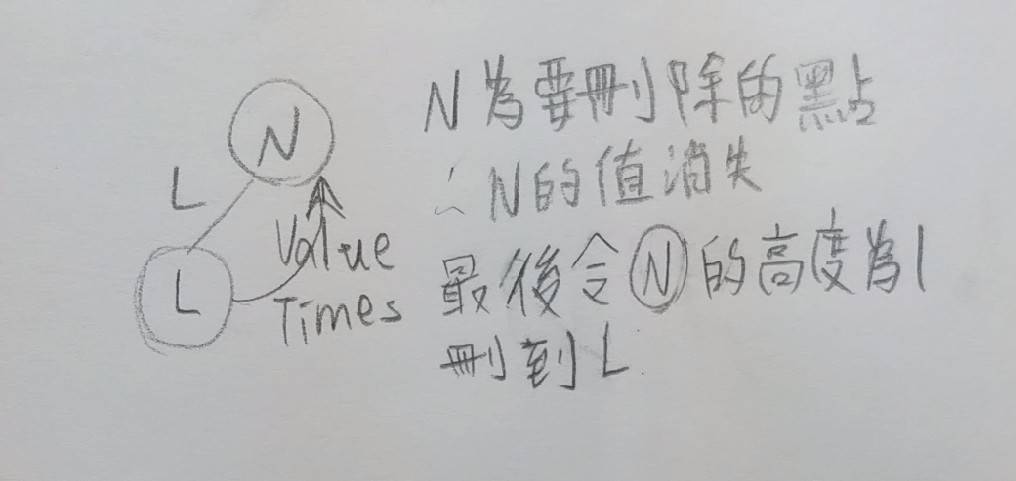 N
L
L
Value
Times
N為要刪除的點
∴N的值消失
最後令Ⓝ的高度為1
刪到L